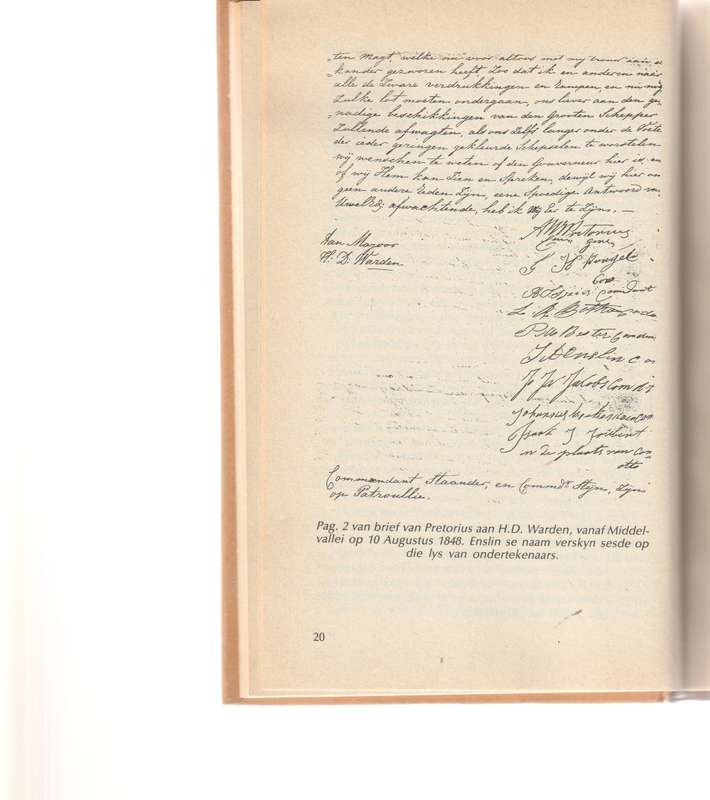 ten magt, welke nu voor altoos met my trouw aan
kander gezworen heeft, Zoo dat ik en anderen naar
alle de Zware verdrukkingen en Rampen, en nu nog
Zulke lot moeten ondergaan, ons liever aan den ge
nadige beschikkingen van den Grooten Schepper
Zullende afwagten, als ons Zelfs langer onder de Voete
der ieder geringen gekleurde Schepselen te worstelen
wij wenschen te weten of den Gouverneur hier is, en
of wij Hem kan Zien en Spreken, dewijl wij hier om
geen andere Reden Zijn, eene Spoedige Antwoord van
UwelEd; afwachtende, heb ik Eer te Zijn. —
AWJPretorius
Com gene
Aan Majoor
H. D. Warden
G H
Com
Comdant
L. R. Botha
P. M. Bester Comdan
J A Enslin Co
J. W. Jacobs Comd
Johannes
J Joubint
in de plaats van Com
otto
Commandant Staander, en Commdt Steijn, Zijn
op Patroullie.
Pag. 2 van brief van Pretorius aan H.D. Warden, vanaf Middel-
vallei op 10 Augustus 1848. Enslin se naam verskyn sesde op
die lys van ondertekenaars.
20